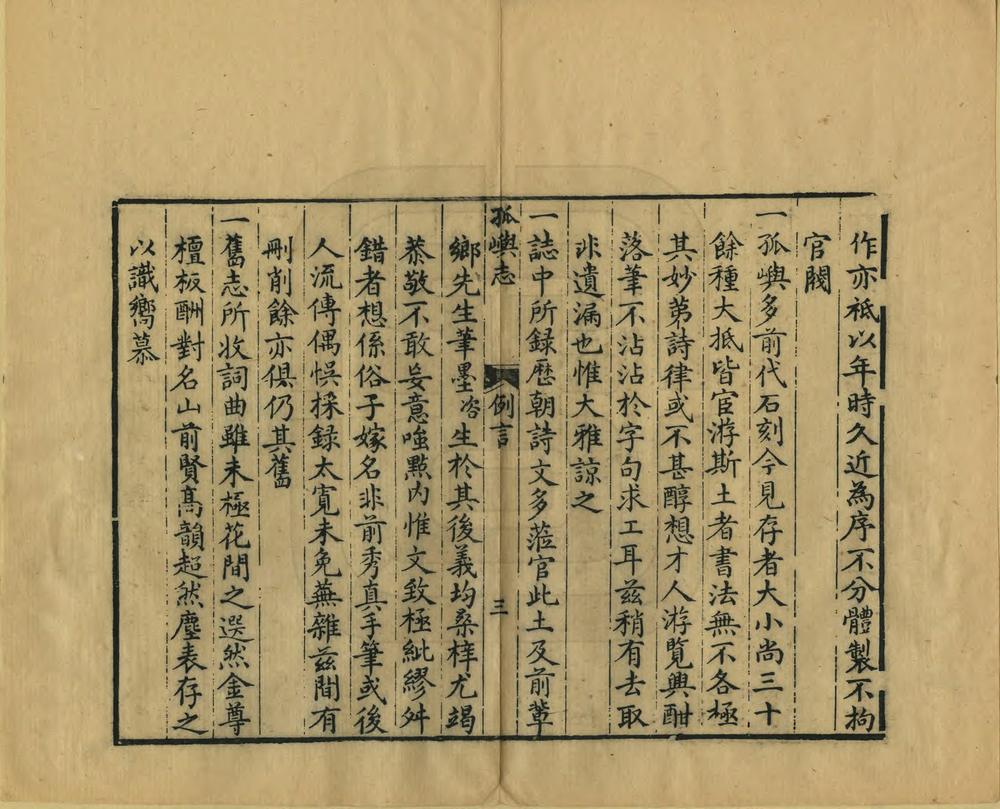 作亦祗以年時久近為序不分體製不拘
官閥
一孤嶼多前代石刻今見存者大小尚三十
餘種大抵皆宦游斯土者書法無不各極
其妙苐詩律或不甚醇想才人游覽興酣
落筆不沾沾於字句求工耳兹稍有去取
非遺漏也惟大雅諒之
一誌中所録歷朝詩文多蒞官此土及前輩
孤嶼志 例言 三
鄉先生筆墨咨生於其後義均桑梓尤竭
恭敬不敢妄意嗤點內惟文致極紕繆舛
錯者想係俗子嫁名非前秀真手筆或後
人流傳偶悞採録太寬未免蕪雜兹間有
刪削餘亦俱仍其舊
一舊志所收詞曲雖未極花間之選然金尊
檀板酬對名山前賢高韻超然塵表存之
以識嚮慕